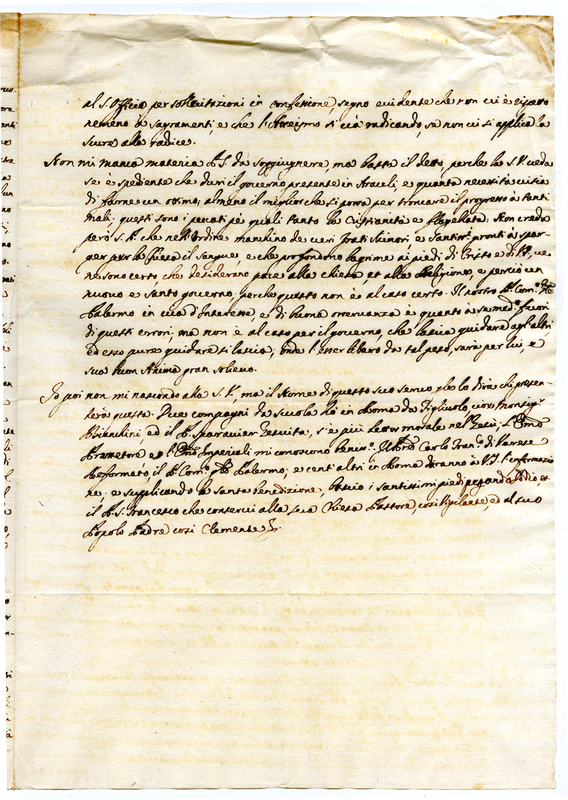 al S. Officio per sollecitazioni in confessione, segno evidente che non vi è rispetto
nemeno a Sagramenti, e che l'Ateismo si và radicando se non vi si applica la
Scure alla radice.
Non mi manca materia da soggiugnere, ma basta il detto, perche la S.V. veda
se è spediente che duri il governo presente in Araceli, e quanta necessità vi sia
di farne un ottimo, almeno il miglior che si possa per troncare il progresso à tanti
mali; questi sono i peccati pe' quali tanto la Cristianità è flagellata. Non creda
però S.V. che nell'Ordine manchino de veri Frati Minori e Santissimi pronti à spar-
ger per la Fede il Sangue, e che profondono lagrime ai piedi di Cristo e di
ne sono certo che desiderano pace alla chiesa, et alla Religione, e perciò un
nuovo e santo governo, perche questo non è al caso certo. Il nostro
Palermo in via d'Interesse, e di buona osservanza è quanto a se fuori
di questi errori, ma non è al caso per il governo, che lascia guidare agl'altri
ed esso pure guidare si lascia; onde l'esser libero da tal peso, sarà per lui, e
sua buon Anima gran solievo.
Io poi non mi nascondo alla S.V., ma il Nome di questo suo servo glielo dirà chi presen-
terà questa. Due compagni da Scuola hò in Roma da figliuolo cioè Monsig.r
Bianchini ed il P. Gesuita, s'è più Lettor morale nel Gesù; l'Em.o
e l'Em.o Imperiali mi conoscono beniss.o Il P.re Carlo Fran.co di Varese
Reformato, il P. Com.o Palermo; e cent'altri in Roma daranno à V.S. l'informazio-
ne; e supplicando la Santa benedizione, bascio i Santissimi piedi pregando Iddio et
il P. S. Francesco che conservi alla sua Chiesa Pastore così Vigilante, ed al suo
Popolo Padre così Clemente.